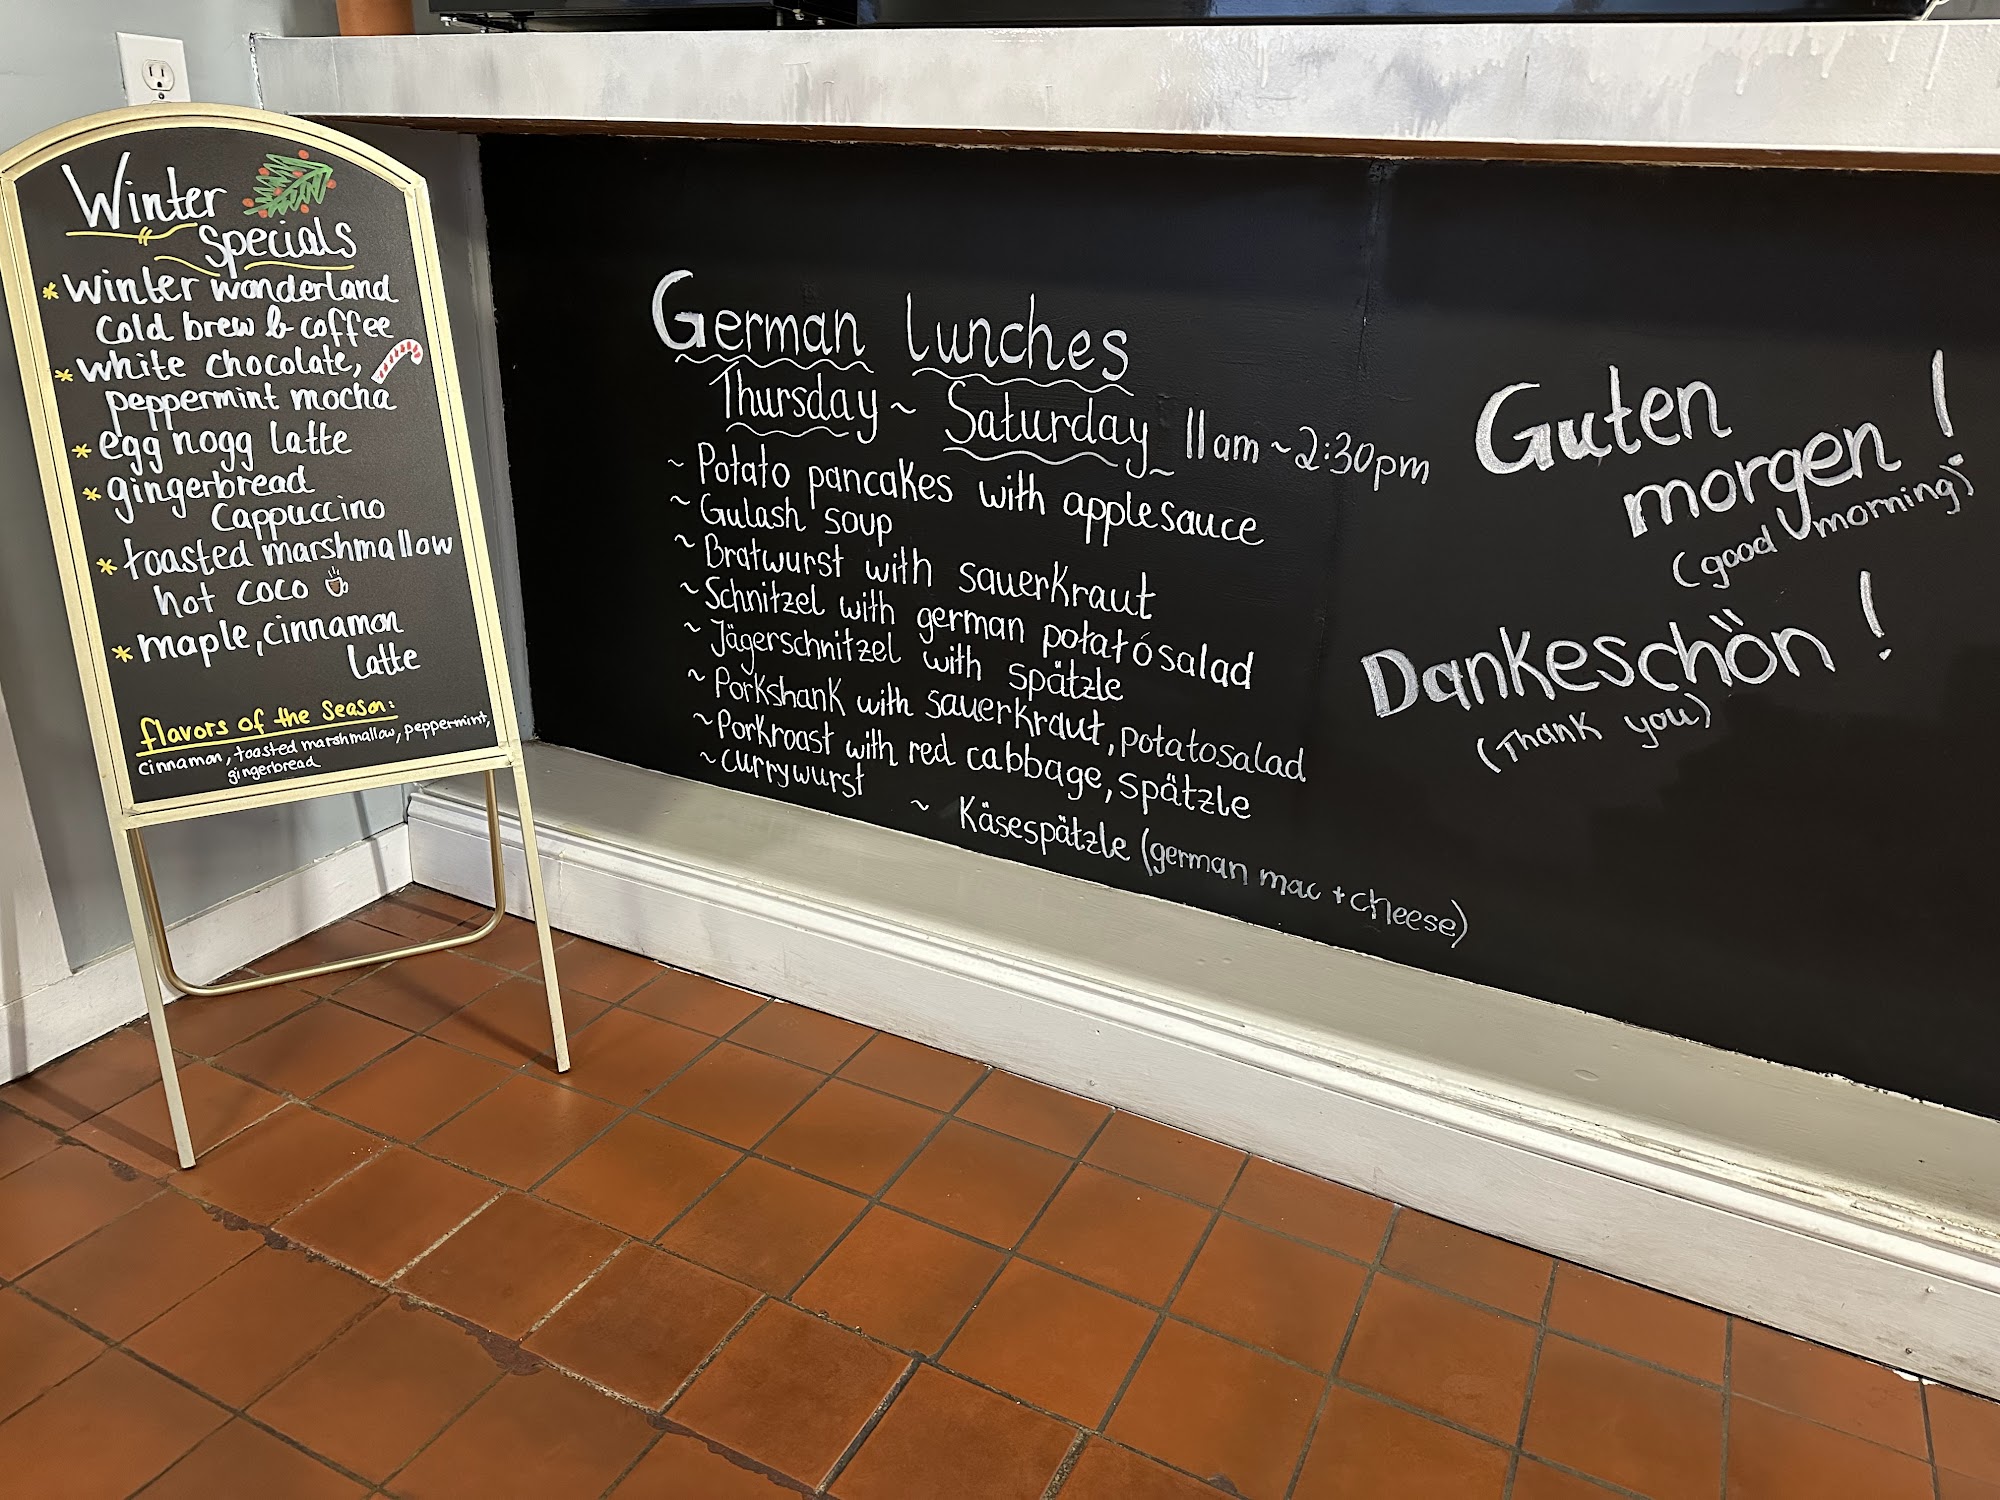 Winter
Specials
* Winter wonderland
cold brew & coffee
* white chocolate,
peppermint mocha
* egg nogg latte
* gingerbread
Cappuccino
* toasted marshmallow
hot coco
* maple, cinnamon
latte
flavors of the season:
cinnamon, toasted marshmallow, peppermint,
gingerbread
German lunches
Thursday ~ Saturday 11am ~ 2:30pm
~ Potato pancakes with applesauce
~ Gulash soup
~ Bratwurst with sauerkraut
~ Schnitzel with german potatósalad
~ Jägerschnitzel with spätzle
~ Porkshank with sauerkraut, potatosalad
~ Porkroast with red cabbage, spätzle
~ currywurst
~ Käsespätzle (german mac + cheese)
Guten
morgen!
(good morning)
Dankeschön!
(Thank you)